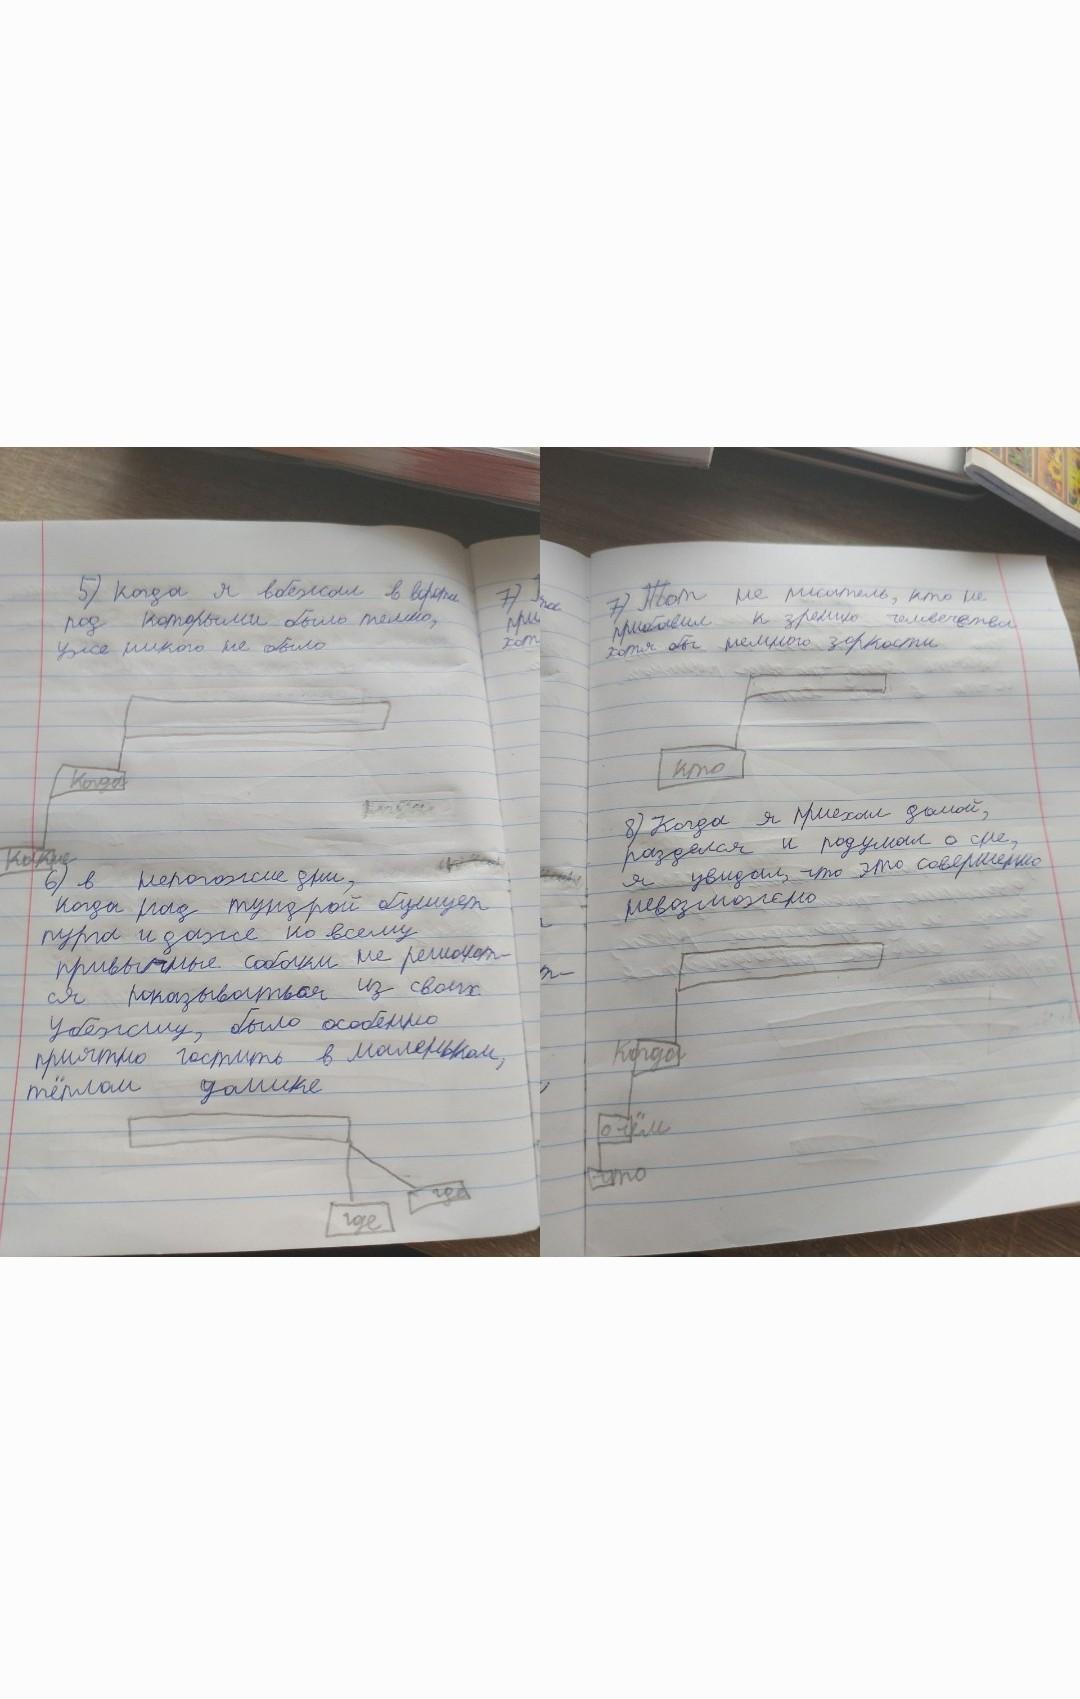 5) Когда я вбежал в ворота
под которыми было темно,
уже никого не было
Когда
Какие
6) в непогожие дни,
когда над тундрой бушует
пурга и даже ко всему
привычные собаки не решают-
ся показываться из своих
убежищ, было особенно
приятно гостить в маленьком,
тёплом домике
где
где
7) Тот
при
хотя
7) Тот не писатель, кто не
прибавил к зрению человечества
хотя бы немного зоркости
кто
8) Когда я приехал домой,
разделся и подумал о сне,
я увидал, что это совершенно
невозможно
Когда
о чём
что